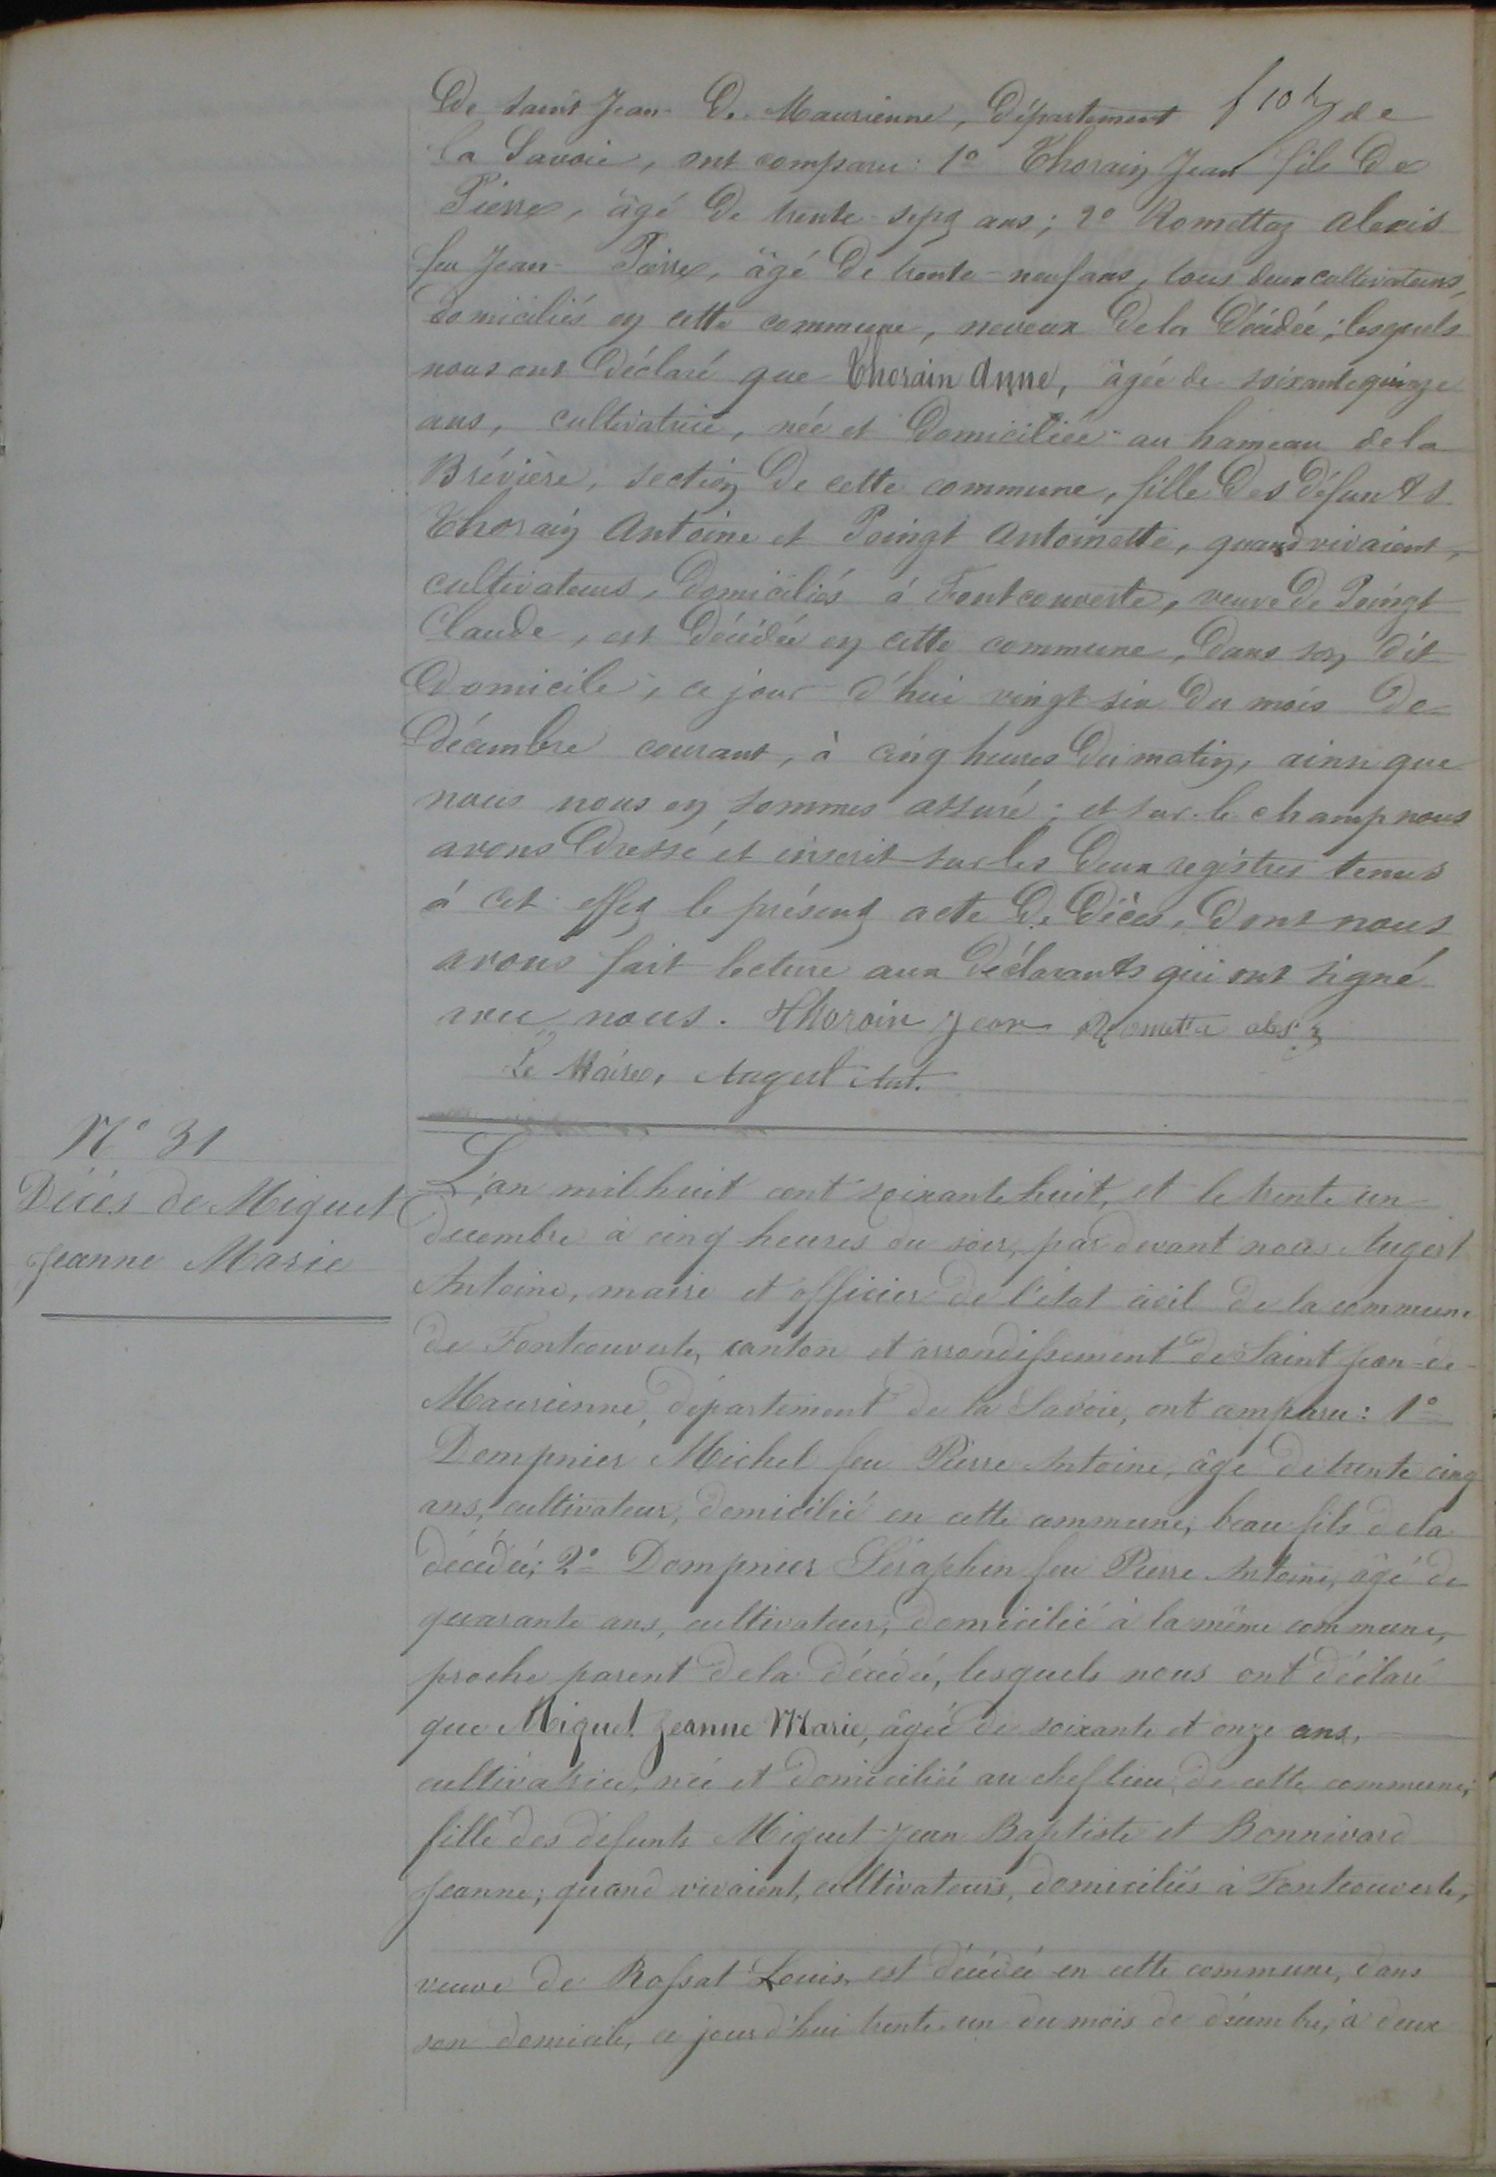 De Saint Jean De Maurienne, Département f 10 de
la Savoie, ont comparu : 1º Thorain Jean fils De
Pierre, âgé De trente-sept ans ; 2º Romettaz alexis
feu Jean-Pierre, âgé De trente-neuf ans, tous deux cultivateurs,
domiciliés en cette commune, neveux De la Décédée ; lesquels
nous ont Déclaré que Thorain Anne, âgée de soixante quinze
ans, cultivatrice, née et Domiciliée au hameau de la
Brévière, section De cette commune, fille Des Défunts
Thorain Antoine et Poingt Antoinette, quand vivaient,
cultivateurs, Domiciliés à Fontcouverte, veuve De Poingt
Claude, est Décédée en cette commune, Dans son dit
Domicile, ce jour d'hui vingt six Du mois De
Décembre courant, à cinq heures Du matin, ainsi que
nous nous en sommes assuré ; et sur-le champ nous
avons Dressé et inscrit sur les Deux registres tenus
à cet effet le présent acte De Décès, Dont nous
avons fait lecture aux Déclarants qui ont signé
avec nous. Thorain Jean Rometta
Le Maire, Augert Ant.
Nº 31
Décès de Miguet
Jeanne Marie
L'an mil huit cent soixante huit, et le trente un
decembre à cinq heures du soir, par devant nous Augert
Antoine, maire et officier de l'état civil de la commune
de Fontcouverte, canton et arrondissement de Saint Jean-de-
Maurienne, département de la Savoie, ont comparu : 1º
Dompnier Michel feu Pierre Antoine, âgé de trente cinq
ans, cultivateur, domicilié en cette commune, beau fils de la
décédée ; 2º Dompnier Séraphin feu Pierre Antoine, âgé de
quarante ans, cultivateur, domicilié à la même commune,
proche parent de la décédée, lesquels nous ont déclaré
que Miguet Jeanne Marie, âgée de soixante et onze ans,
cultivatrice, née et domiciliée au chef lieu de cette commune,
fille des défunts Miguet Jean Baptiste et Bonnivard
Jeanne, quand vivaient, cultivateurs, domiciliés à Fontcouverte,
veuve de Rossat Louis, est décédée en cette commune, dans
son domicile, ce jour d'hui trente un du mois de décembre, à deux